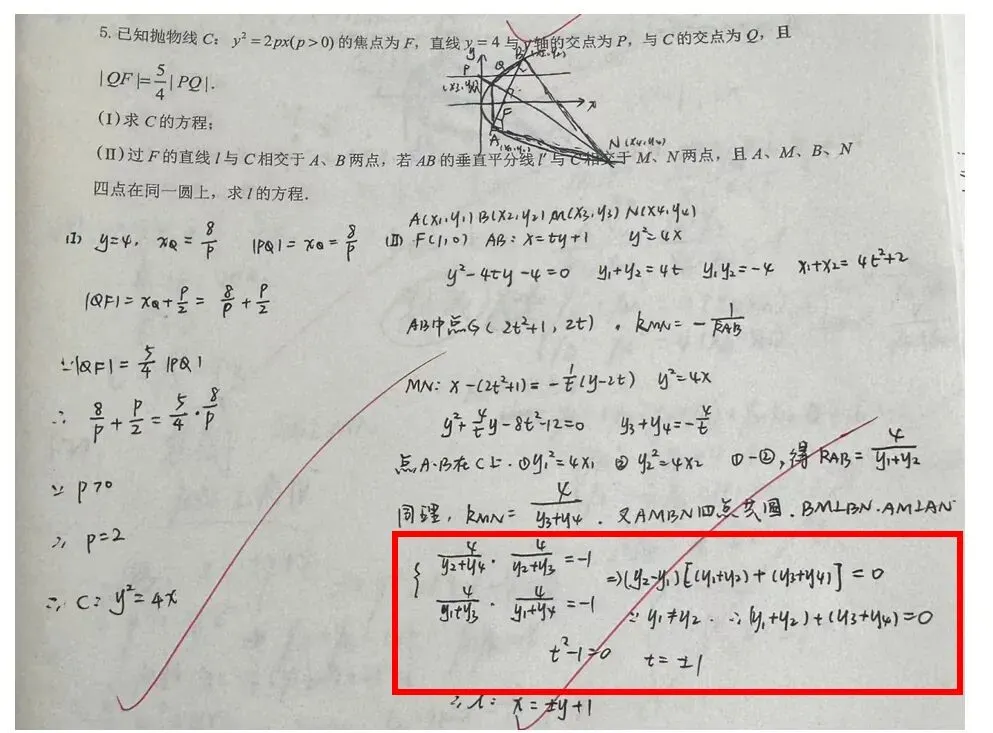 5. 已知抛物线 C：y²=2px(p>0) 的焦点为 F，直线 y=4 与 y 轴的交点为 P，与 C 的交点为 Q，且
|QF|=5/4|PQ|.
(I) 求 C 的方程；
(II) 过 F 的直线 l 与 C 相交于 A、B 两点，若 AB 的垂直平分线 l′ 与 C 相交于 M、N 两点，且 A、M、B、N
四点在同一圆上，求 l 的方程.
y
P
Q
B (x2,y2)
(x3,y3)
x
F
A
(x1,y1)
N (x4,y4)
(I) y=4, xQ = 8/p |PQ| = xQ = 8/p
|QF| = xQ + p/2 = 8/p + p/2
∵|QF| = 5/4 |PQ|
∴ 8/p + p/2 = 5/4 · 8/p
∵ p>0
∴ p=2
∴ C: y²=4x
A(x1,y1) B(x2,y2) M(x3,y3) N(x4,y4)
(II) F(1,0) AB: x=ty+1 y²=4x
y²-4ty-4=0 y1+y2=4t y1y2=-4 x1+x2=4t²+2
AB中点G(2t²+1, 2t). kMN= -1/kAB
MN: x-(2t²+1) = -1/t(y-2t) y²=4x
y²+4/t y-8t²-12=0 y3+y4=-4/t
点A.B在C上. ①y1²=4x1 ②y2²=4x2 ①-②,得 kAB= 4/(y1+y2)
同理, kMN= 4/(y3+y4). 又AMBN四点共圆. BM⊥BN.AM⊥AN
{ 4/(y2+y4) · 4/(y2+y3) =-1
4/(y1+y3) · 4/(y1+y4) =-1
⇒(y2-y1)[(y1+y2)+(y3+y4)]=0
∵ y1≠y2. ∴(y1+y2)+(y3+y4)=0
t²-1=0 t=±1
∴ l: x=±y+1